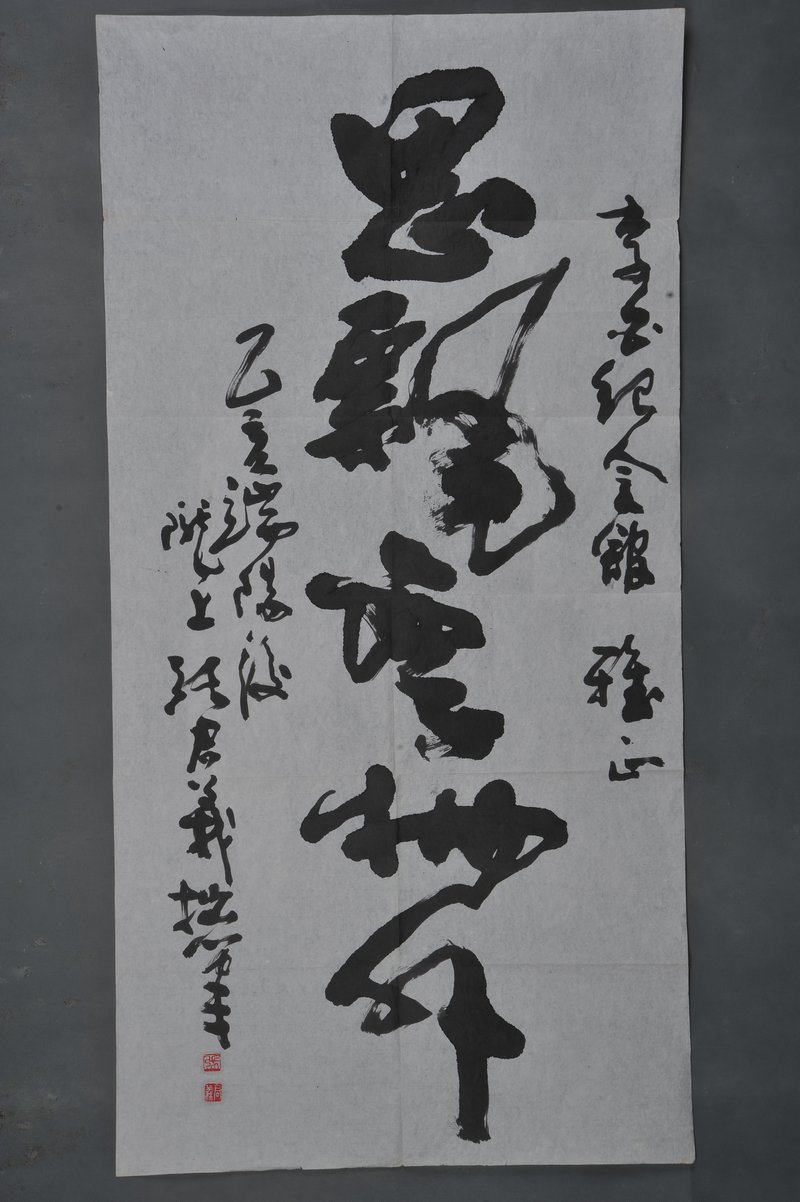 李白纪念館 雅正
思飘雲物外
乙亥端陽後
隴上張君義拙筆